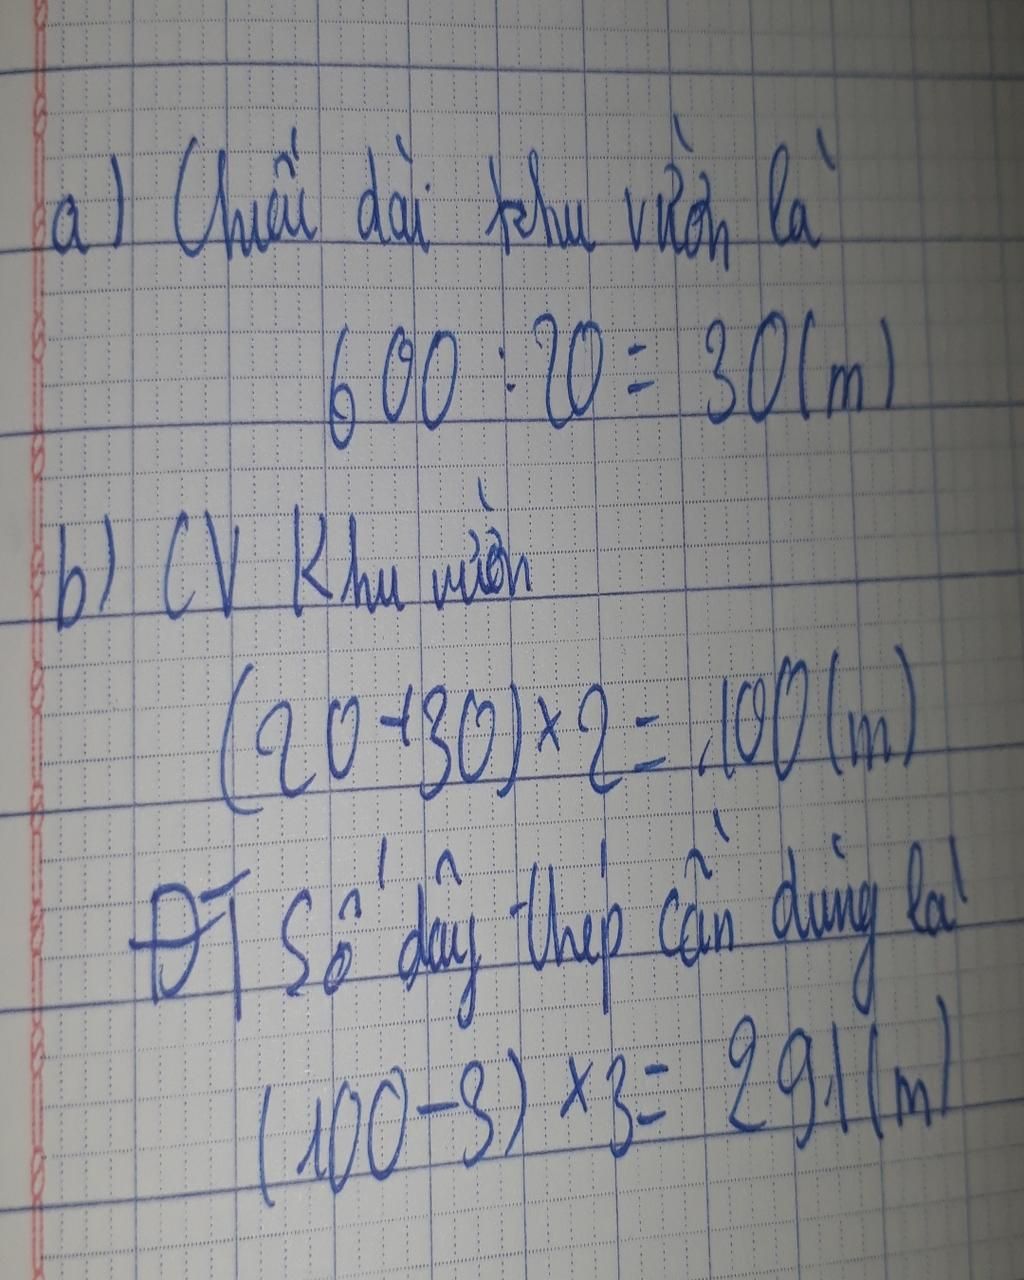 a) Chiều dài khu vườn là
600 : 20 = 30 (m)
b) CV Khu vườn
(20 + 30) × 2 = 100 (m)
ĐT Số dây thép cần dùng là
(100 - 3) × 3 = 291 (m)